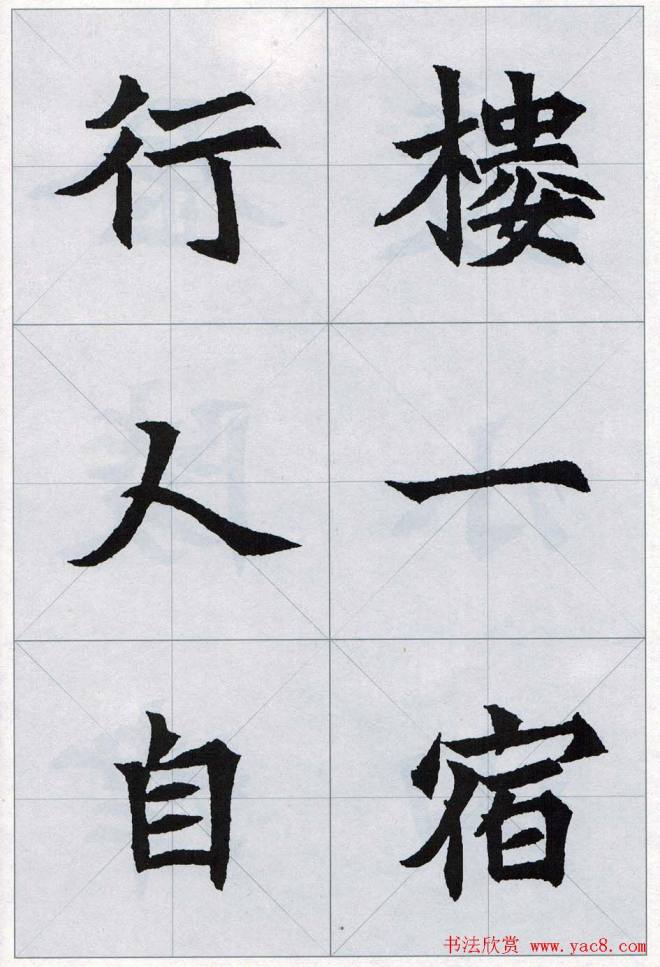 樓一宿
行人自
书法欣赏 www.yac8.com